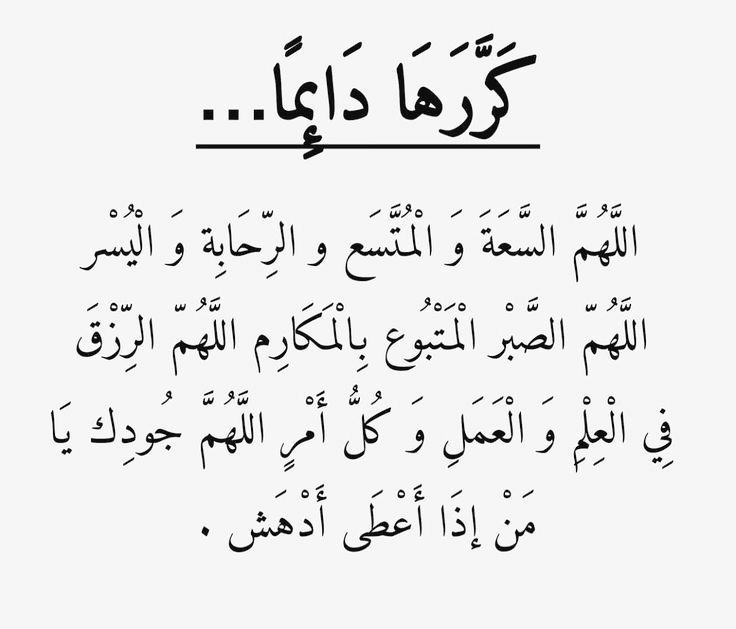 كَرَّرَهَا دَائِمًا...
اللَّهُمَّ السَّعَةَ وَ الْمُتَّسَع و الرِّحَابِة وَ الْيُسْر
اللَّهُمّ الصَّبْر الْمَتْبُوع بِالْمَكَارِم اللَّهُمّ الرِّزْقَ
فِي الْعِلْمِ وَ الْعَمَلِ وَ كُلُّ أَمْرٍ اللَّهُمَّ جُودِك يَا
مَنْ إذَا أَعْطَى أَدْهَش .